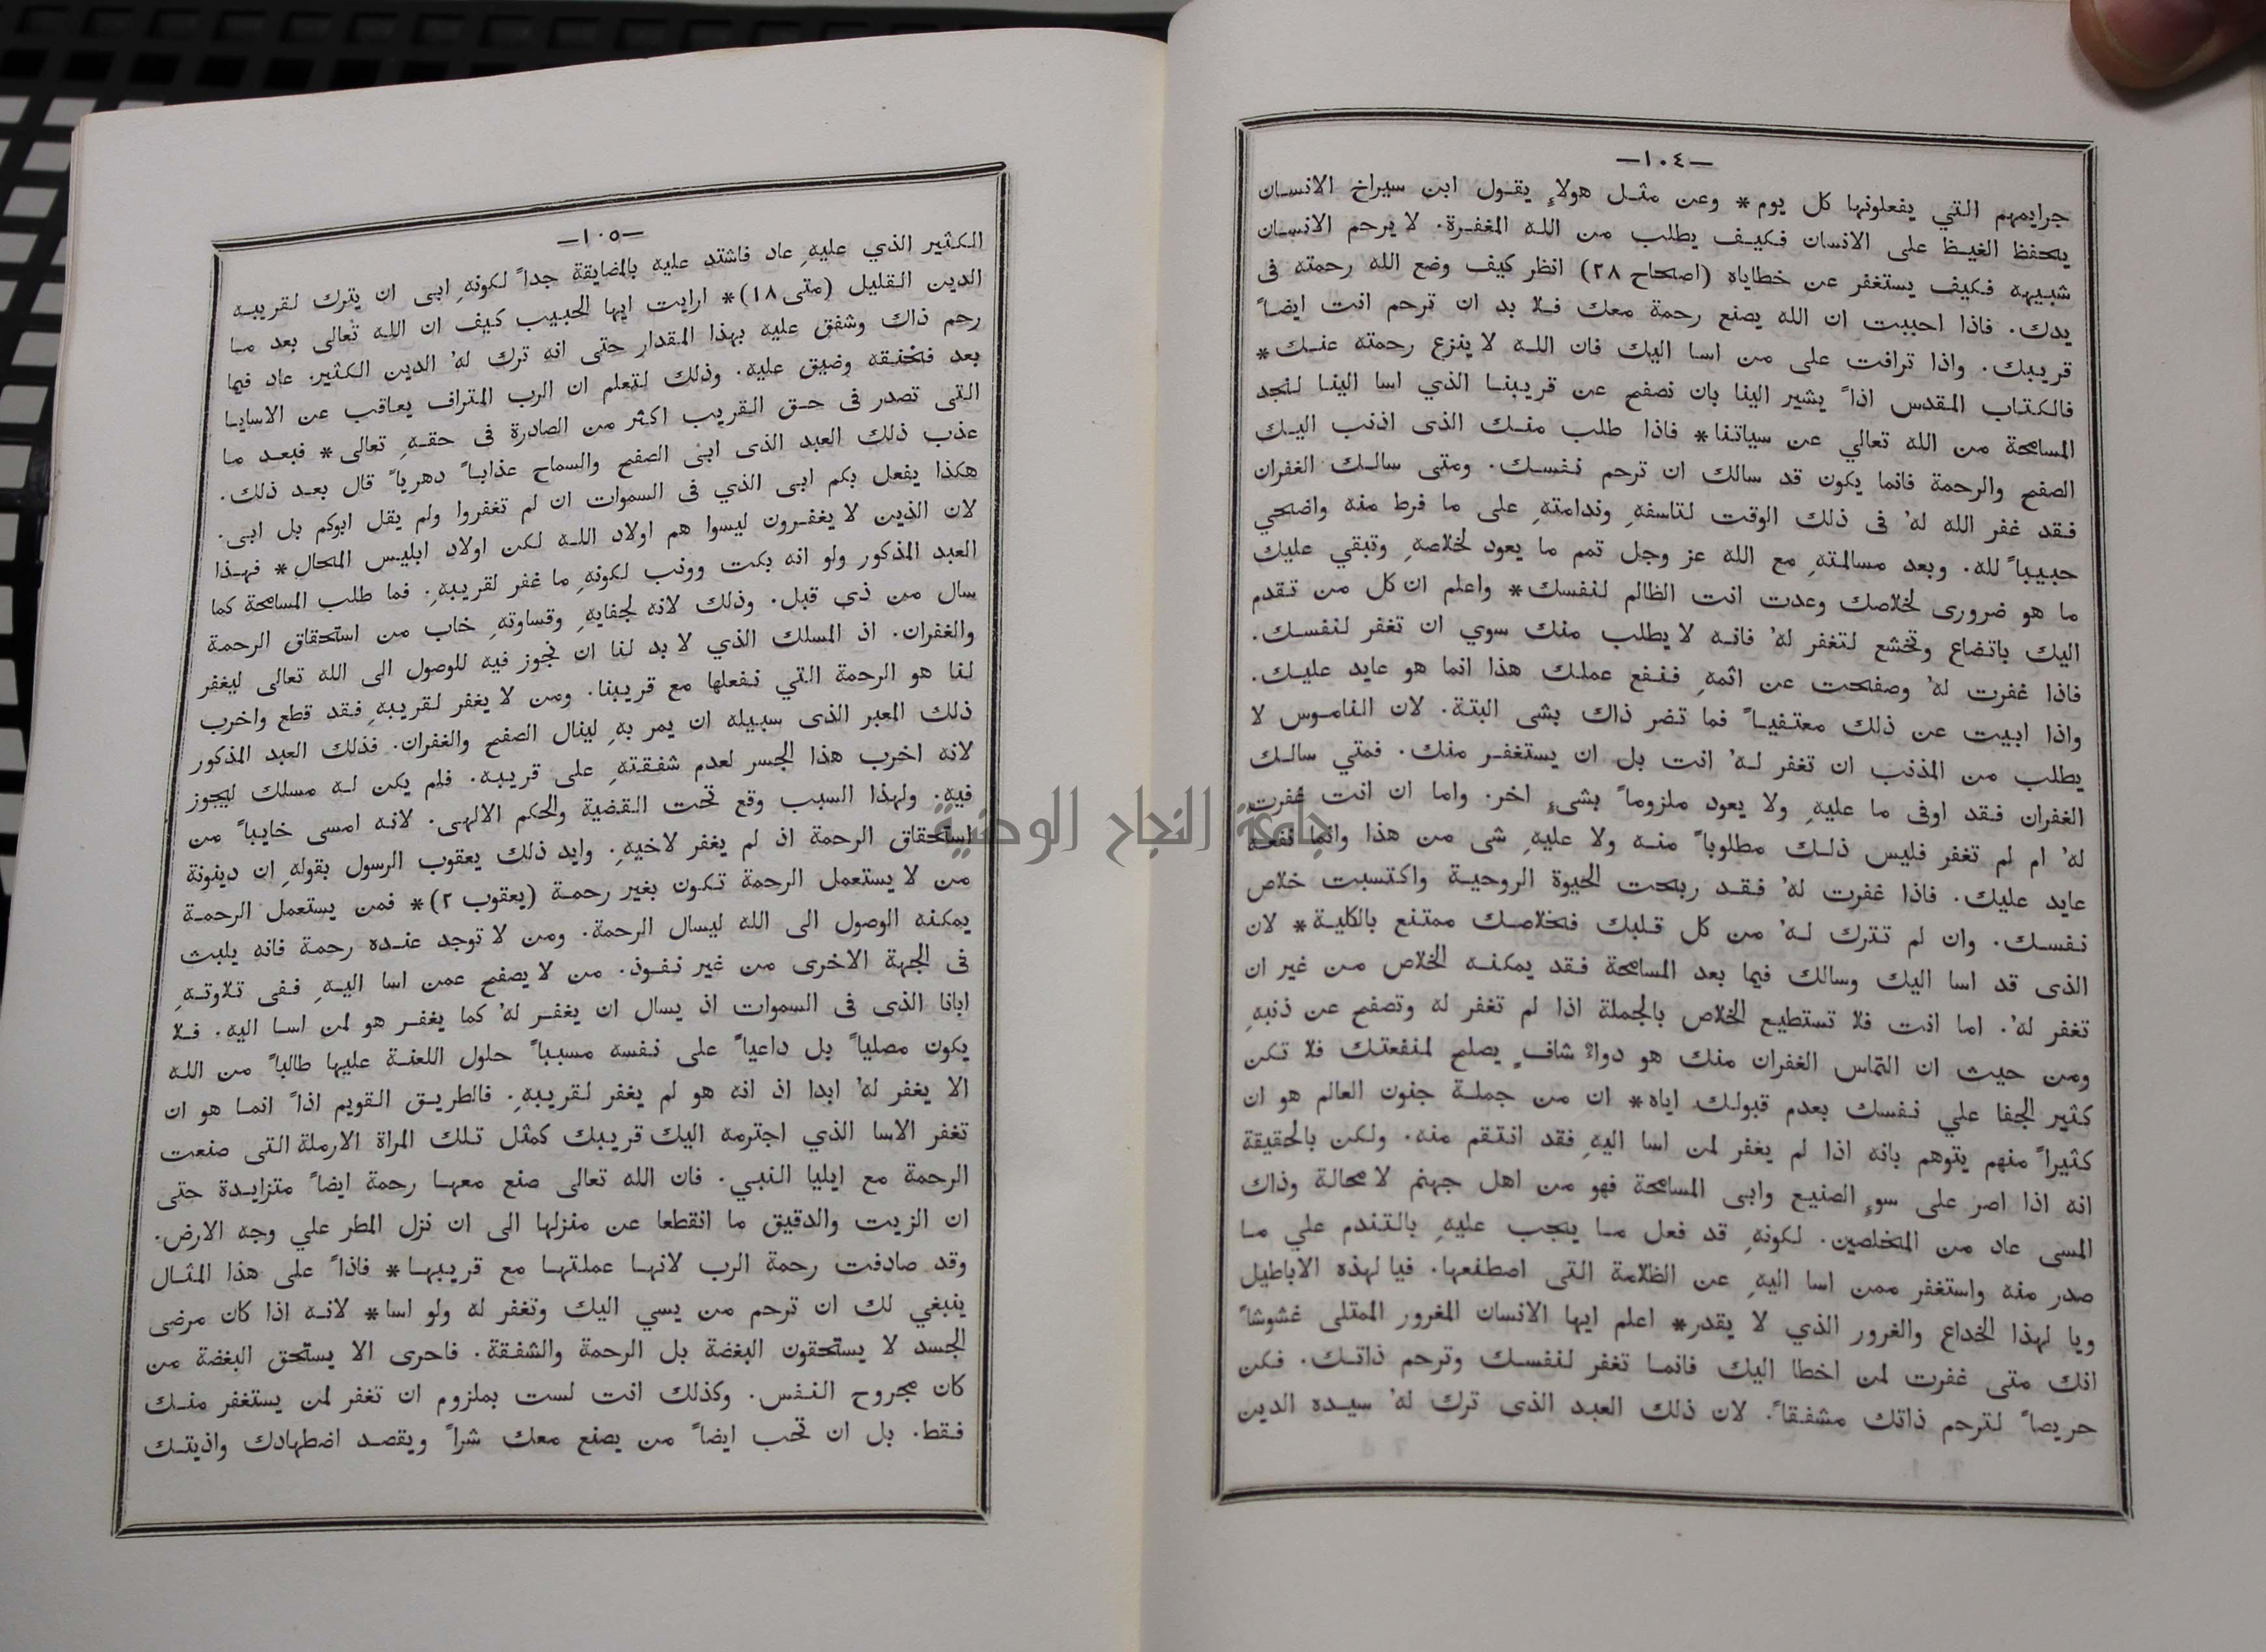 —١٠٤—
جرايمهم التي يفعلونها كل يوم* وعن مثل هولاءِ يقول ابن سيراخ الانسان
يحفظ الغيظ على الانسان فكيف يطلب من الله المغفرة. لا يرحم الانسان
شبيهه فكيف يستغفر عن خطاياه (اصحاح ٢٨) انظر كيف وضع الله رحمته فى
يدك. فاذا احببت ان الله يصنع رحمة معك فلا بد ان ترحم انت ايضاً
قريبك. واذا ترافت على من اسا اليك فان الله لا ينزع رحمته عنك*
فالكتاب المقدس اذاً يشير الينا بان نصفح عن قريبنا الذي اسا الينا لنجد
المسامحة من الله تعالي عن سياتنا* فاذا طلب منك الذى اذنب اليك
الصفح والرحمة فانما يكون قد سالك ان ترحم نفسك. ومتى سالك الغفران
فقد غفر الله له' فى ذلك الوقت لتاسفهِ وندامتهِ على ما فرط منه واضحي
حبيباً لله. وبعد مسالمتهِ مع الله عز وجل تمم ما يعود لخلاصهِ وتبقي عليك
ما هو ضرورى لخلاصك وعدت انت الظالم لنفسك* واعلم ان كل من تقدم
اليك باتضاع وتخشع لتغفر له' فانه لا يطلب منك سوي ان تغفر لنفسك.
فاذا غفرت له' وصفحت عن اثمهِ فنفع عملك هذا انما هو عايد عليك.
واذا ابيت عن ذلك معتفياً فما تضر ذاك بشى البتة. لان الناموس لا
يطلب من المذنب ان تغفر له' انت بل ان يستغفر منك. فمتي سالك
الغفران فقد اوفى ما عليهِ ولا يعود ملزوماً بشىءٍ اخر. واما ان انت غفرت
له' ام لم تغفر فليس ذلك مطلوباً منه ولا عليهِ شى من هذا وانما نفعه
عايد عليك. فاذا غفرت له' فقد ربحت الحيوة الروحية واكتسبت خلاص
نفسك. وان لم تترك له' من كل قلبك فخلاصك ممتنع بالكلية* لان
الذى قد اسا اليك وسالك فيما بعد المسامحة فقد يمكنه الخلاص من غير ان
تغفر له'. اما انت فلا تستطيع الخلاص بالجملة اذا لم تغفر له وتصفح عن ذنبهِ
ومن حيث ان التماس الغفران منك هو دواءٌ شافٍ يصلح لمنفعتك فلا تكن
كثير الجفا علي نفسك بعدم قبولك اياه* ان من جملة جنون العالم هو ان
كثيراً منهم يتوهم بانه اذا لم يغفر لمن اسا اليهِ فقد انتقم منه. ولكن بالحقيقة
انه اذا اصر على سوءِ الصنيع وابى المسامحة فهو من اهل جهنم لا محالة وذاك
المسى عاد من المتخلصين. لكونهِ قد فعل ما يجب عليهِ بالتندم علي ما
صدر منه واستغفر ممن اسا اليهِ عن الظلامة التى اصطنعها. فيا لهذه الاباطيل
ويا لهذا الخداع والغرور الذي لا يقدر* اعلم ايها الانسان المغرور الممتلى غشوشاً
انك متى غفرت لمن اخطا اليك فانما تغفر لنفسك وترحم ذاتك. فكن
حريصاً لترحم ذاتك مشفقاً. لان ذلك العبد الذى ترك له' سيده الدين
—١٠٥—
الكثير الذي عليهِ عاد فاشتد عليه بالمضايقة جداً لكونهِ ابى ان يترك لقريبه
الدين القليل (متى ١٨)* ارايت ايها الحبيب كيف ان الله تعالى بعد ما
رحم ذاك وشفق عليه بهذا المقدار حتى انه ترك له' الدين الكثير. عاد فيما
بعد فخنقه وضيق عليه. وذلك لتعلم ان الرب المتراف يعاقب عن الاسايا
التى تصدر فى حق القريب اكثر من الصادرة فى حقهِ تعالى* فبعد ما
عذب ذلك العبد الذى ابى الصفح والسماح عذاباً دهرياً قال بعد ذلك.
هكذا يفعل بكم ابى الذي فى السموات ان لم تغفروا ولم يقل ابوكم بل ابى.
لان الذين لا يغفرون ليسوا هم اولاد الله لكن اولاد ابليس المحال* فهذا
العبد المذكور ولو انه بكت وونب لكونهِ ما غفر لقريبهِ. فما طلب المسامحة كما
سال من ذي قبل. وذلك لانه لجفايهِ وقساوتهِ خاب من استحقاق الرحمة
والغفران. اذ المسلك الذي لا بد لنا ان نجوز فيه للوصول الى الله تعالى ليغفر
لنا هو الرحمة التي نفعلها مع قريبنا. ومن لا يغفر لقريبهِ فقد قطع واخرب
ذلك المعبر الذى سبيله ان يمر بهِ لينال الصفح والغفران. فذلك العبد المذكور
لانه اخرب هذا الجسر لعدم شفقتهِ على قريبه. فلم يكن له مسلك ليجوز
فيه. ولهذا السبب وقع تحت القضية والحكم الالهى. لانه امسى خايباً من
استحقاق الرحمة اذ لم يغفر لاخيهِ. وايد ذلك يعقوب الرسول بقولهِ ان دينونة
من لا يستعمل الرحمة تكون بغير رحمة (يعقوب ٢)* فمن يستعمل الرحمة
يمكنه الوصول الى الله ليسال الرحمة. ومن لا توجد عنده رحمة فانه يلبث
فى الجهة الاخرى من غير نفوذ. من لا يصفح عمن اسا اليهِ ففى تلاوتهِ
ابانا الذى فى السموات اذ يسال ان يغفر له' كما يغفر هو لمن اسا اليه. فلا
يكون مصلياً بل داعياً على نفسه مسبباً حلول اللعنة عليها طالباً من الله
الا يغفر له' ابدا اذ انه هو لم يغفر لقريبهِ. فالطريق القويم اذاً انما هو ان
تغفر الاسا الذي اجترمه اليك قريبك كمثل تلك المراة الارملة التى صنعت
الرحمة مع ايليا النبي. فان الله تعالى صنع معها رحمة ايضاً متزايدة حتى
ان الزيت والدقيق ما انقطعا عن منزلها الى ان نزل المطر علي وجه الارض.
وقد صادفت رحمة الرب لانها عملتها مع قريبها* فاذاً على هذا المثال
ينبغي لك ان ترحم من يسي اليك وتغفر له ولو اسا* لانه اذا كان مرضى
الجسد لا يستحقون البغضة بل الرحمة والشفقة. فاحرى الا يستحق البغضة من
كان مجروح النفس. وكذلك انت لست بملزوم ان تغفر لمن يستغفر منك
فقط. بل ان تحب ايضاً من يصنع معك شراً ويقصد اضطهادك واذيتك
جامعة النجاح الوطنية